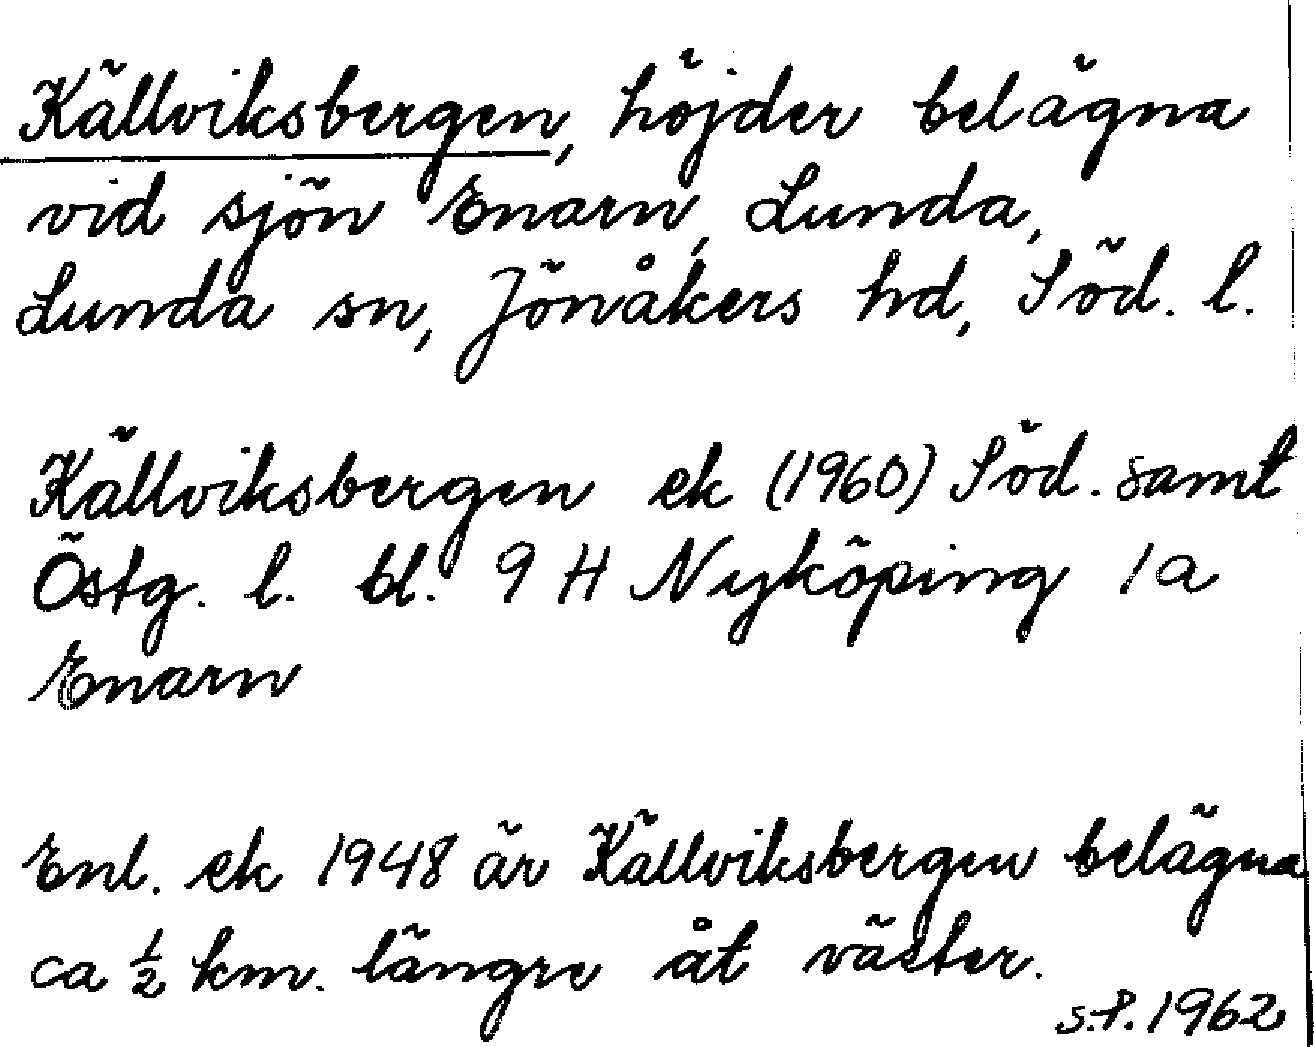 Källviksbergen, höjder belägna
vid sjön Enarn, Lunda,
Lunda sn, Jönåkers hd, Söd. l.
Källviksbergen ek (1960) Söd. samt
Östg. l. bl. 9 H Nyköping 1a
Enarn
Enl. ek 1948 är Källviksbergen belägna
ca ½ km. längre åt väster.
S.P. 1962